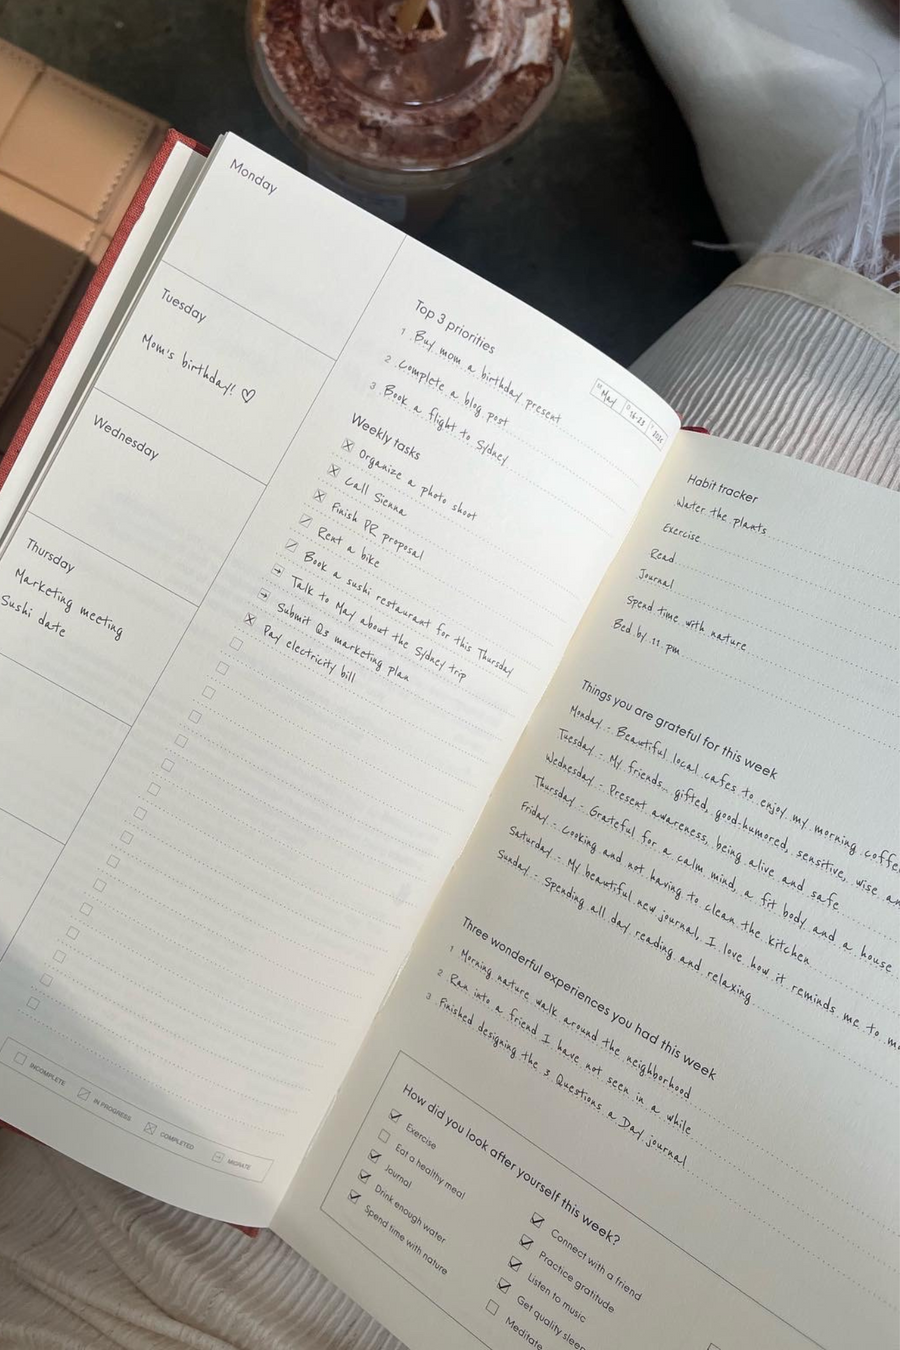 Monday
Tuesday
Mom's birthday! ♡
Wednesday
Thursday
Marketing meeting
Sushi date
Top 3 priorities
1 Buy mom a birthday present
2 Complete a blog post
3 Book a flight to Sydney
May
2021
Weekly tasks
Organize a photo shoot
Call Sienna
Finish PR proposal
Rent a bike
Book a sushi restaurant for this Thursday
Talk to May about the Sydney trip
Submit Q3 marketing plan
Pay electricity bill
INCOMPLETE
IN PROGRESS
COMPLETED
MIGRATE
Habit tracker
Water the plants
Exercise
Read
Journal
Spend time with nature
Bed by 11 pm
Things you are grateful for this week
Monday - Beautiful local cafes to enjoy my morning coffee
Tuesday - My friends.. gifted, good-humored, sensitive, wise an
Wednesday - Present awareness, being alive and safe
Thursday - Grateful for a calm mind, a fit body and a house
Friday - Cooking and not having to clean the kitchen
Saturday - My beautiful new journal, I love how it reminds me to
Sunday - Spending all day reading and relaxing
Three wonderful experiences you had this week
1 Morning nature walk around the neighborhood
2 Ran into a friend I have not seen in a while
3 Finished designing the 3 Questions a Day journal
How did you look after yourself this week?
Exercise
Eat a healthy meal
Journal
Drink enough water
Spend time with nature
Connect with a friend
Practice gratitude
Listen to music
Get quality sleep
Meditate